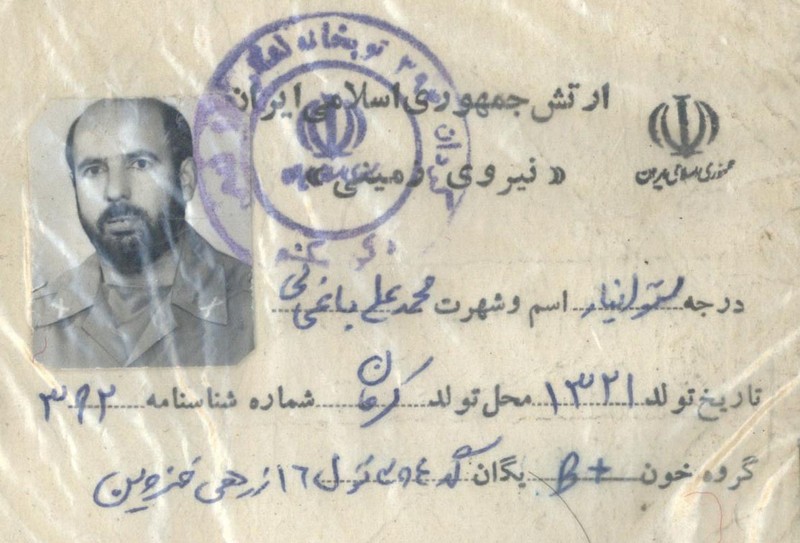 ارتش جمهوری اسلامی ایران
جمهوری اسلامی ایران
« نیروی زمینی »
توپخانه
درجه ستوانیار اسم و شهرت محمد علی
تاریخ تولد ۱۳۲۱ محل تولد کرمان شماره شناسنامه ۳۹۲
گروه خون B+ یگان ۱۶ زرهی قزوین